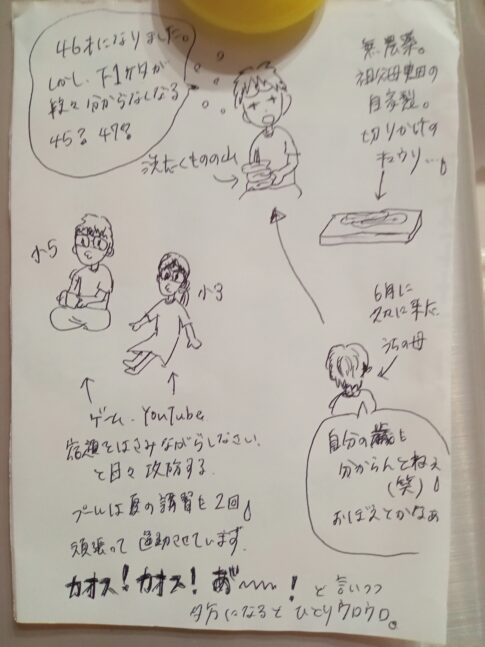 46才になりました。
しかし、下1ケタが
段々分からなくなる
45? 47?
無農薬。
祖父母畑の
自家製。
切りかけの
キュウリ…♪
洗たくものの山
小5
小3
6月に
久々に来た
うちの母
ゲーム、YouTube
宿題をはさみながらしなさい、
と日々攻防する。
プールは夏の講習も2回♪
頑張って運動させています。
自分の歳も
分からんとねぇ
(笑)♪
おぼえとかなぁ
カオス!カオス!あ゛~~!と言いつつ
夕方になるとひとりウロウロ。